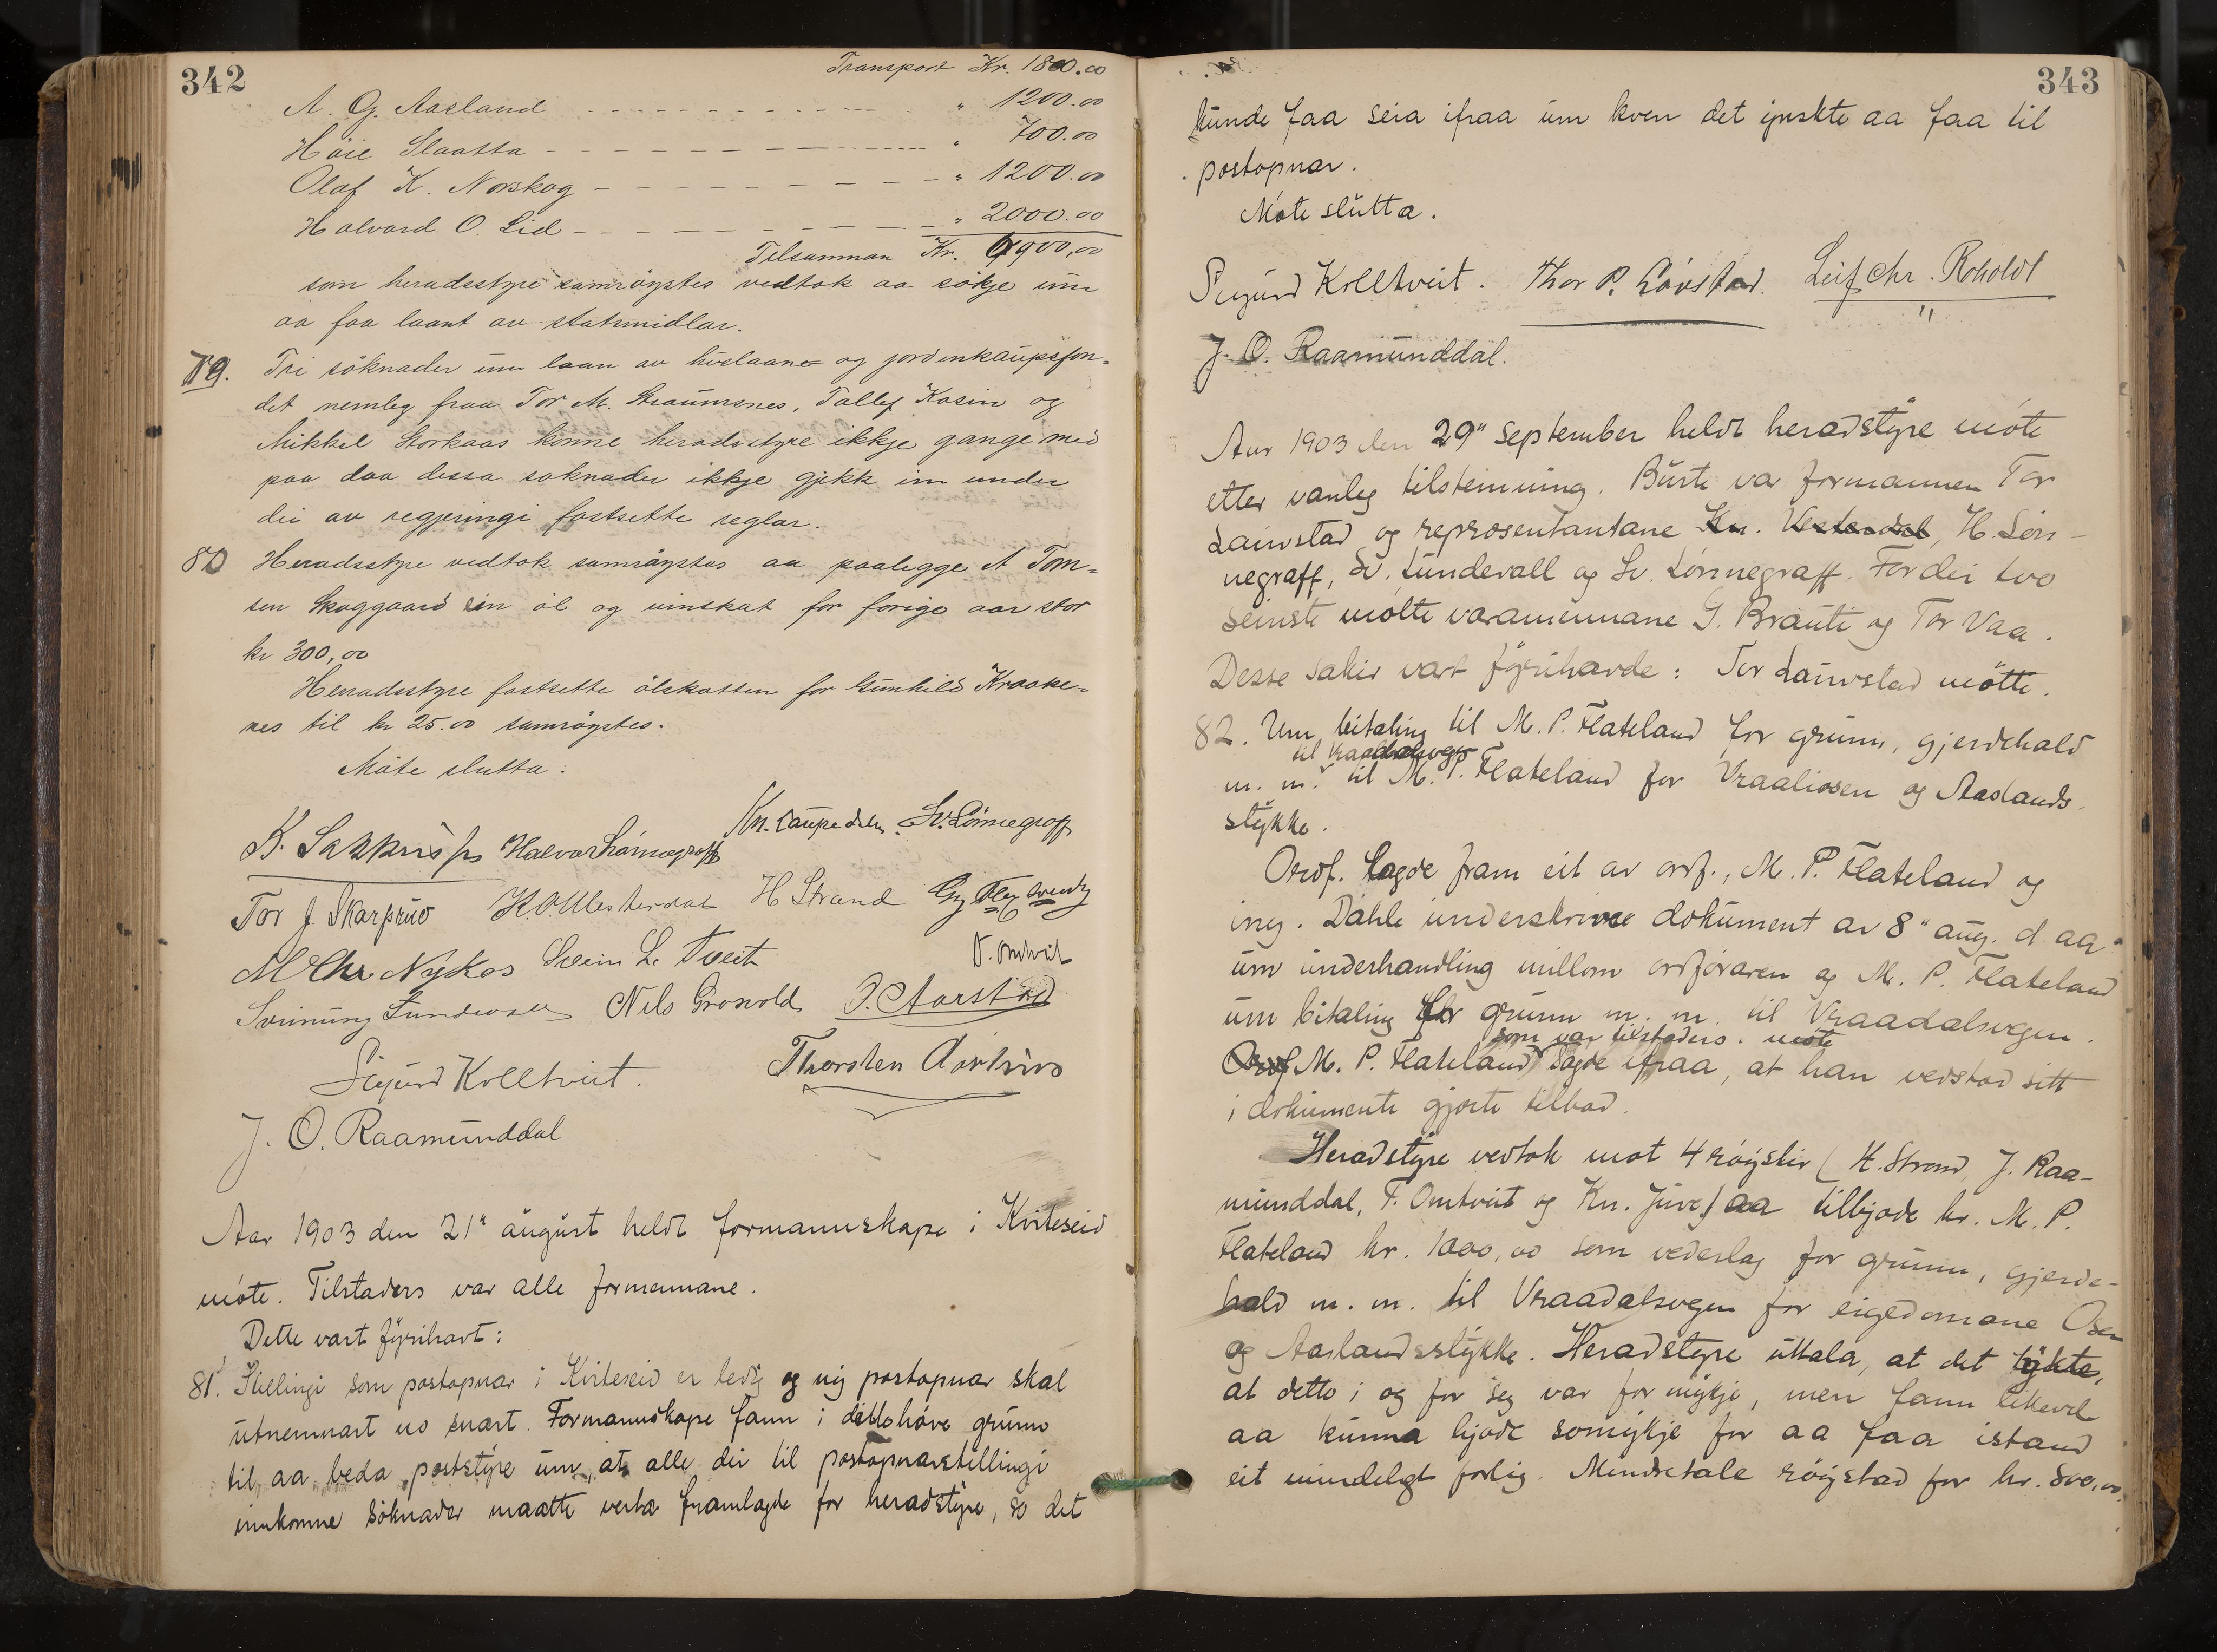 342
Transport Kr. 1800.00
A. G. Aasland - - - - " 1200.00
Håie Slaatta - - - - " 700.00
Olaf K. Norskog - - - - " 1200.00
Halvard O. Lid - - - - " 2000.00
Tilsamman Kr. 6900,00
som heradsstyre samrøystes vedtok aa søkje um
aa faa laant av statsmidlar.
79. Tri söknader um laan av huslaane og jordinnkaupsfon-
det nemleg fraa Tor M. Straumsnes, Tallef Kasin og
Mikkel Storkaas konne heradsstyre ikkje gange med
paa daa dessa søknader ikkje gjekk inn under
dei av regjeringi fastsette reglar.
80 Heradsstyre vedtok samrøystes aa paalegge A Tom-
sen Skoggaard sin øl og vinskat for forige aar stor
kr 300,00
Heradsstyre fastsette ølskatten for Gunhild Kraake-
nes til kr 25.00 samrøystes.
Møte slutta:
Kn. Laupedalen. Sv. Lönnegraff
Halvor Lönnegraff
Tor J. Skarprud K. O. Vesterdal H Strand
M Chr Nykos Svein L. Tveit T. Omtvit
Sveinung Lundevall Nils Grovold O. Aarstad
Sigurd Kolltveit. Thorsten
J. O. Raamunddal
Aar 1903 den 21" august heldt formannskape i Kviteseid
møte. Tilstaders var alle formennane.
Dette vart fyrihavt:
81. Stillingi som postopnar i Kviteseid er ledig og ny postopnar skal
utnemnast no snart. Formannskape fann i dette høve grunn
til aa beda poststyre um, at alle dei til postopnarstellingi
innkomne søknader maatte verta framlagde for heradstyre, so det
343
kunde faa seia ifraa um kven det ynskte aa faa til
postopnar.
Møte slutta.
Sigurd Kolltveit. Thor P. Lövstad. Leif Chr. Roholdt
J. O. Raamunddal.
Aar 1903 den 29" September heldt heradstyre møte
etter vanleg tilsteimning. Burte var formannen Tor
Lauvstad og representantane Kn. Vesterdal, H. Løn-
negraff, Sv. Lundevall og Sv. Lønnegraff. For dei tvo
seinste møtte varamennane G. Brauti og Tor Vaa.
Desse sakir vart fyrihavde: Tor Lauvstad møtte.
82. Um bitaling til M. P. Flateland for grunn, gjerdehald
til Vraadalsvegen
m. m. til M. P. Flateland for Vraaliosen og Aaslands-
stykke.
Ordf. lagde fram eit av ordf., M. P. Flateland og
ing. Dahle underskrive dokument av 8" aug. d. aa.
um underhandling millom ordføraren og M. P. Flateland
um bitaling for grunn m. m. til Vraadalsvegen.
som var tilstaders i møte
Ordf M. P. Flateland sagde ifraa, at han vedstod sitt
i dokumente gjorte tilbod.
Heradstyre vedtok mot 4 røyster (H. Strand, J. Raa-
munddal, T. Omtveit og Kn. Juve) aa tilbjode hr. M. P.
Flateland kr. 1000,00 som vederlag for grunn, gjerde-
hald m. m. til Vraadalsvegen for eigedomane Osen
og Aaslandsstykke. Heradstyre uttala, at det tykte,
at dette i og for seg var for mykje, men fann likevel
aa kunna bjode somykje for aa faa istand
eit mindeligt forlig. Mindretale røystad for kr. 800,00.